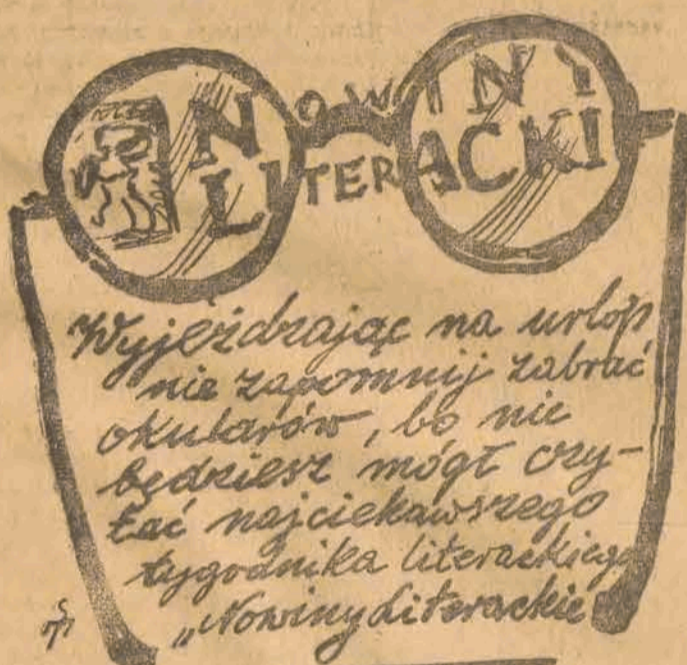 NOWINY
LITERACKI
Wyjeżdżając na urlop
nie zapomnij zabrać
okularów, bo nie
będziesz mógł czy-
tać najciekawszego
tygodnika literackiego
„Nowiny Literackie"